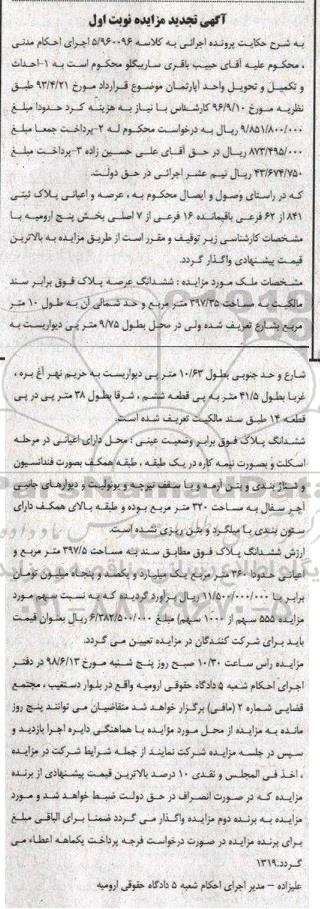 آگهی تجدید مزایده نوبت اول
به شرح حکایت پرونده اجرائی به کلاسه ۵/۹۶۰۰۹۶ اجرای احکام مدنی
، محکوم علیه آقای حبیب باقری ساربیگلو محکوم است به ۱-احداث
و تکمیل و تحویل واحد آپارتمان موضوع قرارداد مورخ ۹۳/۴/۲۱ طبق
نظریه مورخ ۹۶/۹/۱۰ کارشناس با نیاز به هزینه کرد حدودا مبلغ
۹/۸۵۱/۸۰۰/۰۰۰ ریال به درخواست محکوم له ۲-پرداخت جمعا مبلغ
۸۷۳/۴۹۵/۰۰۰ ریال در حق آقای علی حسین زاده ۳-پرداخت مبلغ
۴۳/۶۷۴/۷۵۰ ریال نیم عشر اجرائی در حق دولت.
که در راستای وصول و ایصال محکوم به ، عرصه و اعیانی پلاک ثبتی
۸۴۱ از ۶۲ فرعی باقیمانده ۱۶ فرعی از ۷ اصلی بخش پنج ارومیه با
مشخصات کارشناسی زیر توقیف و مقرر است از طریق مزایده به بالاترین
قیمت پیشنهادی واگذار گردد.
مشخصات ملک مورد مزایده : ششدانگ عرصه پلاک فوق برابر سند
مالکیت به مساحت ۳۹۷/۳۵ متر مربع و حد شمالی آن به طول ۱۰ متر
مربع بشارع تعریف شده ولی در محل بطول ۹/۷۵ متر پی دیواریست به
شارع و حد جنوبی بطول ۱۰/۶۳ متر پی دیواریست به حریم نهر آغ بره ،
غربا بطول ۴۱/۵ متر به پی قطعه ششم ، شرقا بطول ۳۸ متر پی در پی
قطعه ۱۴ طبق سند مالکیت تعریف شده است.
ششدانگ پلاک فوق برابر وضعیت عینی : محل دارای اعیانی در مرحله
اسکلت و بصورت نیمه کاره در یک طبقه ، طبقه همکف بصورت فنداسیون
و شناژ بندی و بتن آرمه و با سقف تیرچه و یونولیت و دیوارهای جانبی
آجر سفال به مساحت ۳۲۰ متر مربع بوده و طبقه بالای همکف دارای
ستون بندی با میلگرد و بتن ریزی نشده است.
ارزش ششدانگ پلاک فوق مطابق سند بنه مساحت ۳۹۷/۵ متر مربع و
اعیانی حدودا ۳۶۰ متر مربع یک میلیارد و یکصد و پنجاه میلیون تومان
برابر با ۱۱/۵۰۰/۰۰۰/۰۰۰ ریال برآورد گردیده که به نسبت سهم مورد
مزایده ۵۵۵ سهم از ۱۰۰۰ سهم) مبلغ ۶/۳۸۲/۵۰۰/۰۰۰ ریال بعنوان قیمت
باید برای شرکت کنندگان در مزایده تعیین می گردد.
مزایده راس ساعت ۱۰/۳۰ صبح روز پنج شنبه مورخ ۹۸/۶/۱۳ در دفتر
اجرای احکام شعبه ۵ دادگاه حقوقی ارومیه واقع در بلوار دستغیب ، مجتمع
قضایی شماره ۲ (مافی) برگزار خواهد شد متقاضیان می توانند پنج روز
مانده به مزایده از محل مورد مزایده با هماهنگی دایره اجرا بازدید و
سپس در جلسه مزایده شرکت نمایند از جمله شرایط شرکت در مزایده
، اخذ فی المجلس و نقدی ۱۰ درصد بالاترین قیمت پیشنهادی از برنده
مزایده که در صورت انصراف در حق دولت ضبط خواهد شد و مورد
مزایده به برنده دوم مزایده واگذار می گردد ضمنا برای الباقی مبلغ
برای برنده مزایده در صورت درخواست فرجه پرداخت یکماهه اعطاء می
گردد.۱۳۱۹
علیزاده – مدیر اجرای احکام شعبه ۵ دادگاه حقوقی ارومیه